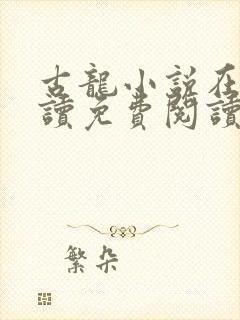 古龍小說在
讀免費閱讀
繁朵